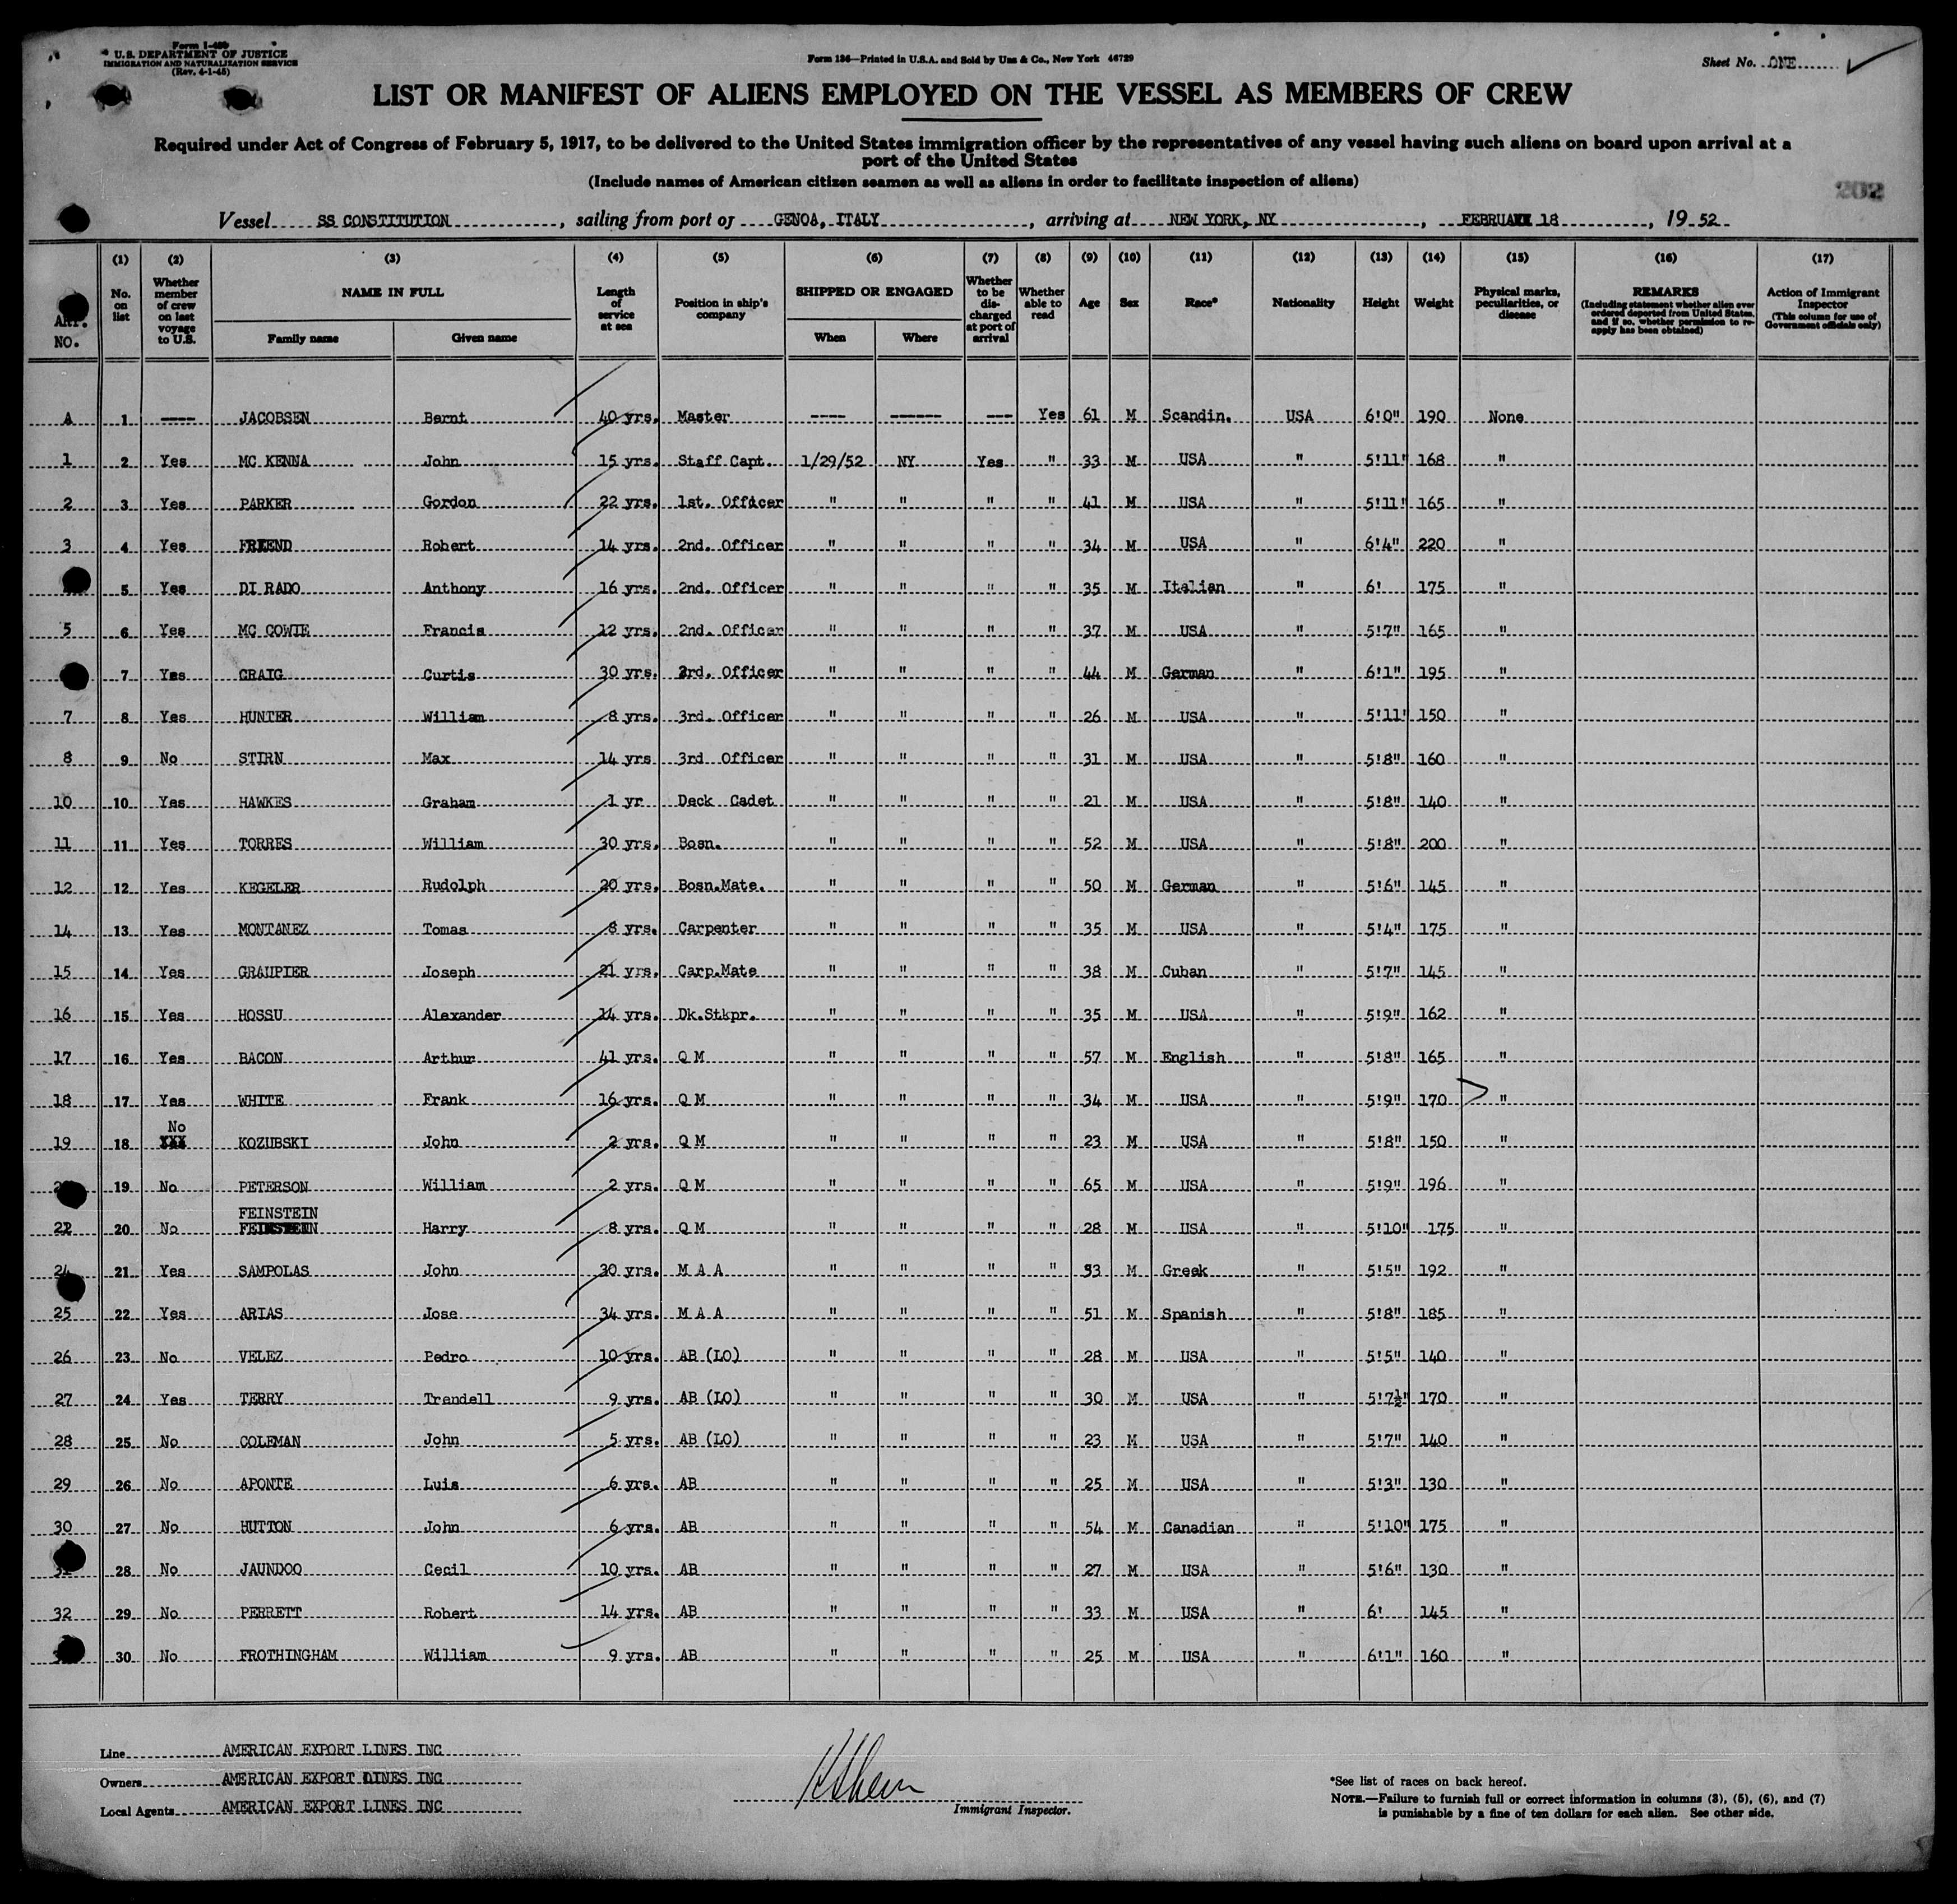 Form I-489
U.S. DEPARTMENT OF JUSTICE
IMMIGRATION AND NATURALIZATION SERVICE
(Rev. 4-1-45)
Form 136—Printed in U.S.A. and Sold by Unz & Co., New York 46729
Sheet No. ONE
LIST OR MANIFEST OF ALIENS EMPLOYED ON THE VESSEL AS MEMBERS OF CREW
Required under Act of Congress of February 5, 1917, to be delivered to the United States immigration officer by the representatives of any vessel having such aliens on board upon arrival at a
port of the United States
(Include names of American citizen seamen as well as aliens in order to facilitate inspection of aliens)
202
Vessel SS CONSTITUTION, sailing from port of GENOA, ITALY, arriving at NEW YORK, NY, 18, 19 52
ART. NO. (1) No. on list (2) Whether member of crew on last voyage to U.S. (3) NAME IN FULL Family name Given name (4) Length of service at sea (5) Position in ship's company (6) SHIPPED OR ENGAGED When Where (7) Whether to be discharged at port of arrival (8) Whether able to read (9) Age (10) Sex (11) Race* (12) Nationality (13) Height (14) Weight (15) Physical marks, peculiarities, or disease (16) REMARKS (Including statement whether alien ever ordered deported from United States, and if so, whether permission to reapply has been obtained) (17) Action of Immigrant Inspector (This column for use of Government officials only)
A 1 ---- JACOBSEN Bernt 40 yrs. Master ---- ------ --- Yes 61 M Scandin. USA 6'0" 190 None
1 2 Yes MC KENNA John 15 yrs. Staff Capt. 1/29/52 NY Yes " 33 M USA " 5'11" 168 "
2 3 Yes PARKER Gordon 22 yrs. 1st. Officer " " " " 41 M USA " 5'11" 165 "
3 4 Yes FRIEND Robert 14 yrs. 2nd. Officer " " " " 34 M USA " 6'4" 220 "
5 Yes DI RADO Anthony 16 yrs. 2nd. Officer " " " " 35 M Italian " 6' 175 "
5 6 Yes MC COWIE Francis 12 yrs. 2nd. Officer " " " " 37 M USA " 5'7" 165 "
7 Yes CRAIG Curtis 30 yrs. 3rd. Officer " " " " 44 M German " 6'1" 195 "
7 8 Yes HUNTER William 8 yrs. 3rd. Officer " " " " 26 M USA " 5'11" 150 "
8 9 No STIRN Max 14 yrs 3rd Officer " " " " 31 M USA " 5'8" 160 "
10 10 Yes HAWKES Graham 1 yr Deck Cadet " " " " 21 M USA " 5'8" 140 "
11 11 Yes TORRES William 30 yrs. Bosn. " " " " 52 M USA " 5'8" 200 "
12 12 Yes KEGELER Rudolph 20 yrs. Bosn.Mate. " " " " 50 M German " 5'6" 145 "
14 13 Yes MONTANEZ Tomas 8 yrs. Carpenter " " " " 35 M USA " 5'4" 175 "
15 14 Yes GRAUPIER Joseph 21 yrs. Carp.Mate " " " " 38 M Cuban " 5'7" 145 "
16 15 Yes HOSSU Alexander 14 yrs. Dk.Stkpr. " " " " 35 M USA " 5'9" 162 "
17 16 Yes BACON Arthur 41 yrs. Q M " " " " 57 M English " 5'8" 165 "
18 17 Yes WHITE Frank 16 yrs. Q M " " " " 34 M USA " 5'9" 170 "
No
19 18 KOZUBSKI John 2 yrs. Q M " " " " 23 M USA " 5'8" 150 "
19 No PETERSON William 2 yrs. Q M " " " " 65 M USA " 5'9" 196 "
FEINSTEIN
22 20 No Harry 8 yrs. Q M " " " " 28 M USA " 5'10" 175 "
24 21 Yes SAMPOLAS John 30 yrs. M A A " " " " 53 M Greek " 5'5" 192 "
25 22 Yes ARIAS Jose 34 yrs. M A A " " " " 51 M Spanish " 5'8" 185 "
26 23 No VELEZ Pedro 10 yrs. AB (LO) " " " " 28 M USA " 5'5" 140 "
27 24 Yes TERRY Trendell 9 yrs. AB (LO) " " " " 30 M USA " 5'7½" 170 "
28 25 No COLEMAN John 5 yrs. AB (LO) " " " " 23 M USA " 5'7" 140 "
29 26 No APONTE Luis 6 yrs. AB " " " " 25 M USA " 5'3" 130 "
30 27 No HUTTON John 6 yrs. AB " " " " 54 M Canadian " 5'10" 175 "
28 No JAUNDOO Cecil 10 yrs. AB " " " " 27 M USA " 5'6" 130 "
32 29 No PERRETT Robert 14 yrs. AB " " " " 33 M USA " 6' 145 "
30 No FROTHINGHAM William 9 yrs. AB " " " " 25 M USA " 6'1" 160 "
Line AMERICAN EXPORT LINES INC
Owners AMERICAN EXPORT LINES INC
Local Agents AMERICAN EXPORT LINES INC
Immigrant Inspector.
*See list of races on back hereof.
NOTE.—Failure to furnish full or correct information in columns (3), (5), (6), and (7)
is punishable by a fine of ten dollars for each alien. See other side.